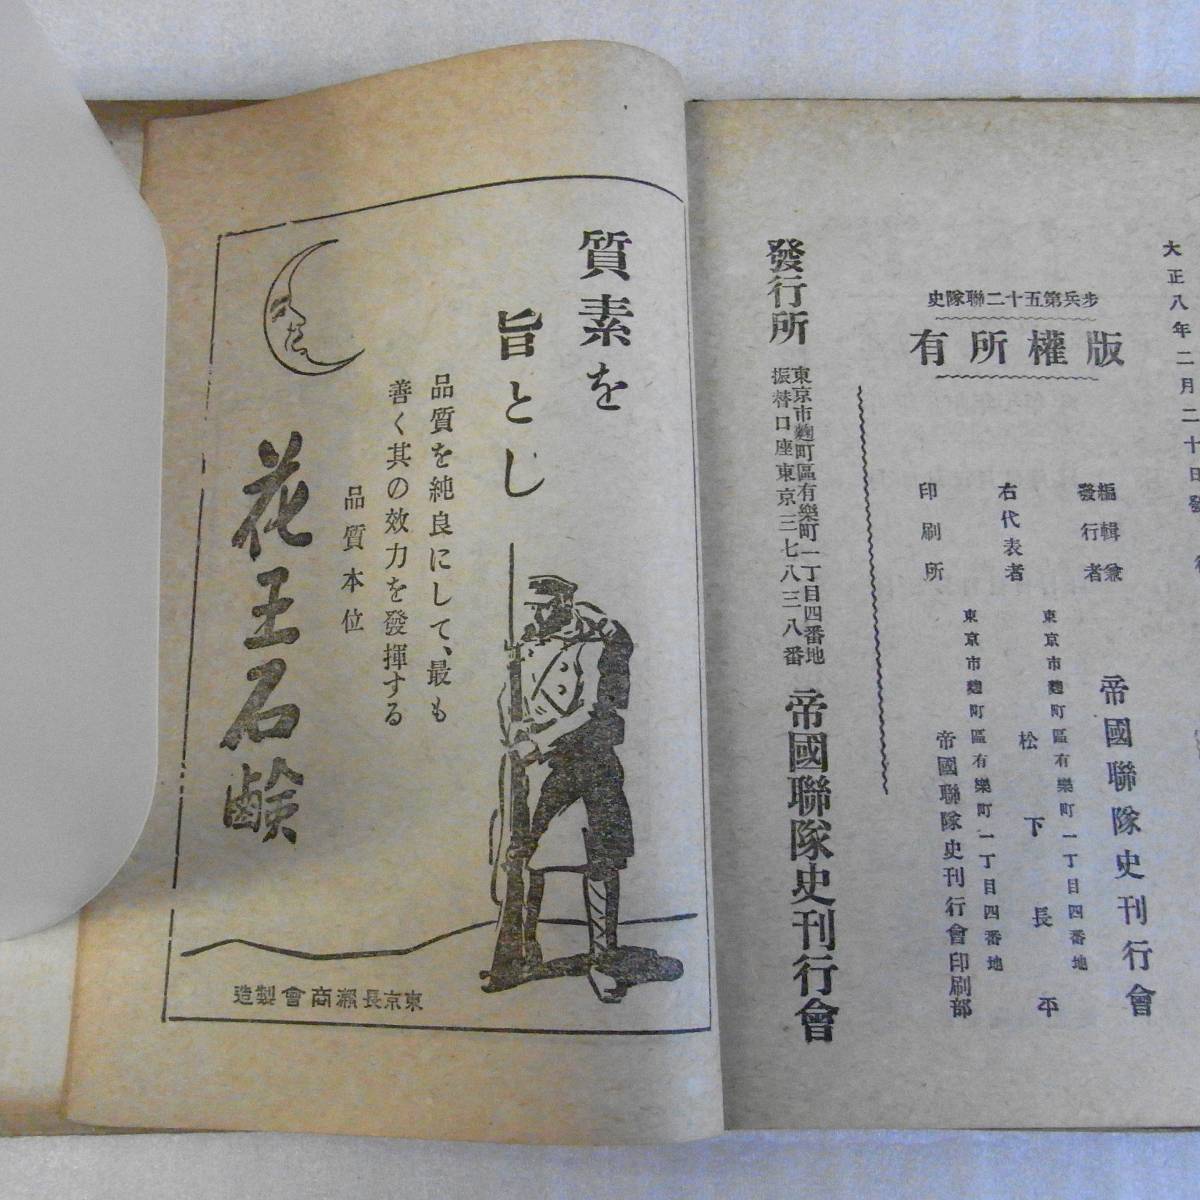 大正八年二月二十日發
歩兵第五十二聯隊史
版權所有
編輯兼
發行者
東京市麴町區有樂町一丁目四番地
帝國聯隊史刊行會
右代表者
松下長平
印刷所
東京市麴町區有樂町一丁目四番地
帝國聯隊史刊行會印刷部
發行所
東京市麴町區有樂町一丁目四番地
振替口座東京三七八三八番
帝國聯隊史刊行會
質素を
旨とし
品質を純良にして、最も
善く其の效力を發揮する
品質本位
花王石鹸
東京長瀨商會製造